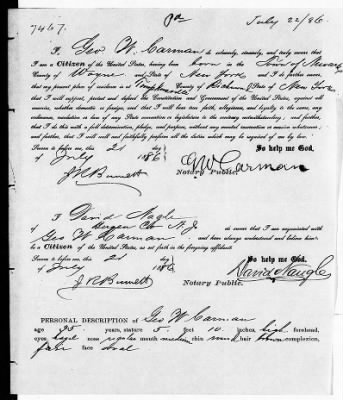 7467. July 22/86.
I, Geo W. Carman do solemnly, sincerely, and truly swear that
I am a Citizen of the United States, having been born in the Town of Newark
County of Wayne and State of New York And I do further swear,
that my present place of residence is at County of Richmond State of New York
that I will support, protect and defend the Constitution and Government of the United States, against all
enemies, whether domestic or foreign, and that I will bear true faith, allegiance, and loyalty to the same, any
ordinance, resolution or law of any State convention or legislature to the contrary notwithstanding; and further,
that I do this with a full determination, pledge, and purpose, without any mental reservation or evasion whatsoever;
and further, that I will well and faithfully perform all the duties which may be required of me by law.
Sworn to before me, this 21 day So help me God.
of July 186 GW Carman
J R Burnett Notary Public.
I David Nagle
of Bergen Co N.J. do swear that I am acquainted with
Geo W Carman and have always understood and believe him
to be a Citizen of the United States, as set forth in the foregoing affidavit.
Sworn to before me, this 21 day So help me God.
of July 186 David Naugle
J. R. Burnett Notary Public.
PERSONAL DESCRIPTION of Geo W Carman
age years, stature 5. feet 10. inches, high forehead,
eyes hazel nose regular mouth medium chin hair brown complexion,
fair face oval